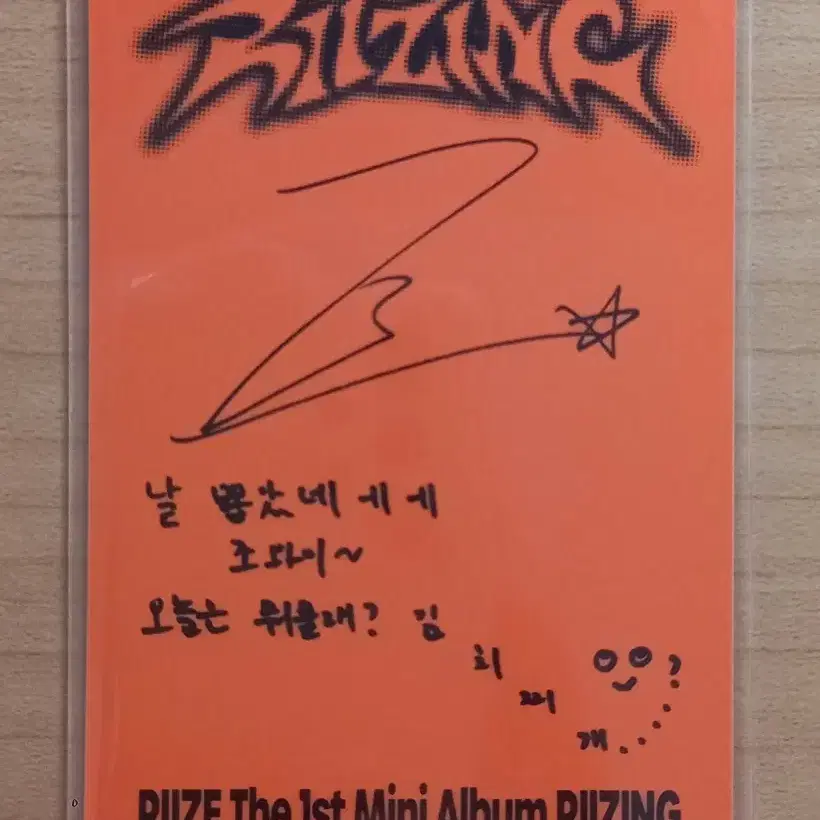 RIIZING
날 뽑았네 에 에
조와이~
오늘은 뭐 먹을래? 김
치
찌
개....?
RIIZE The 1st Mini Album RIIZING